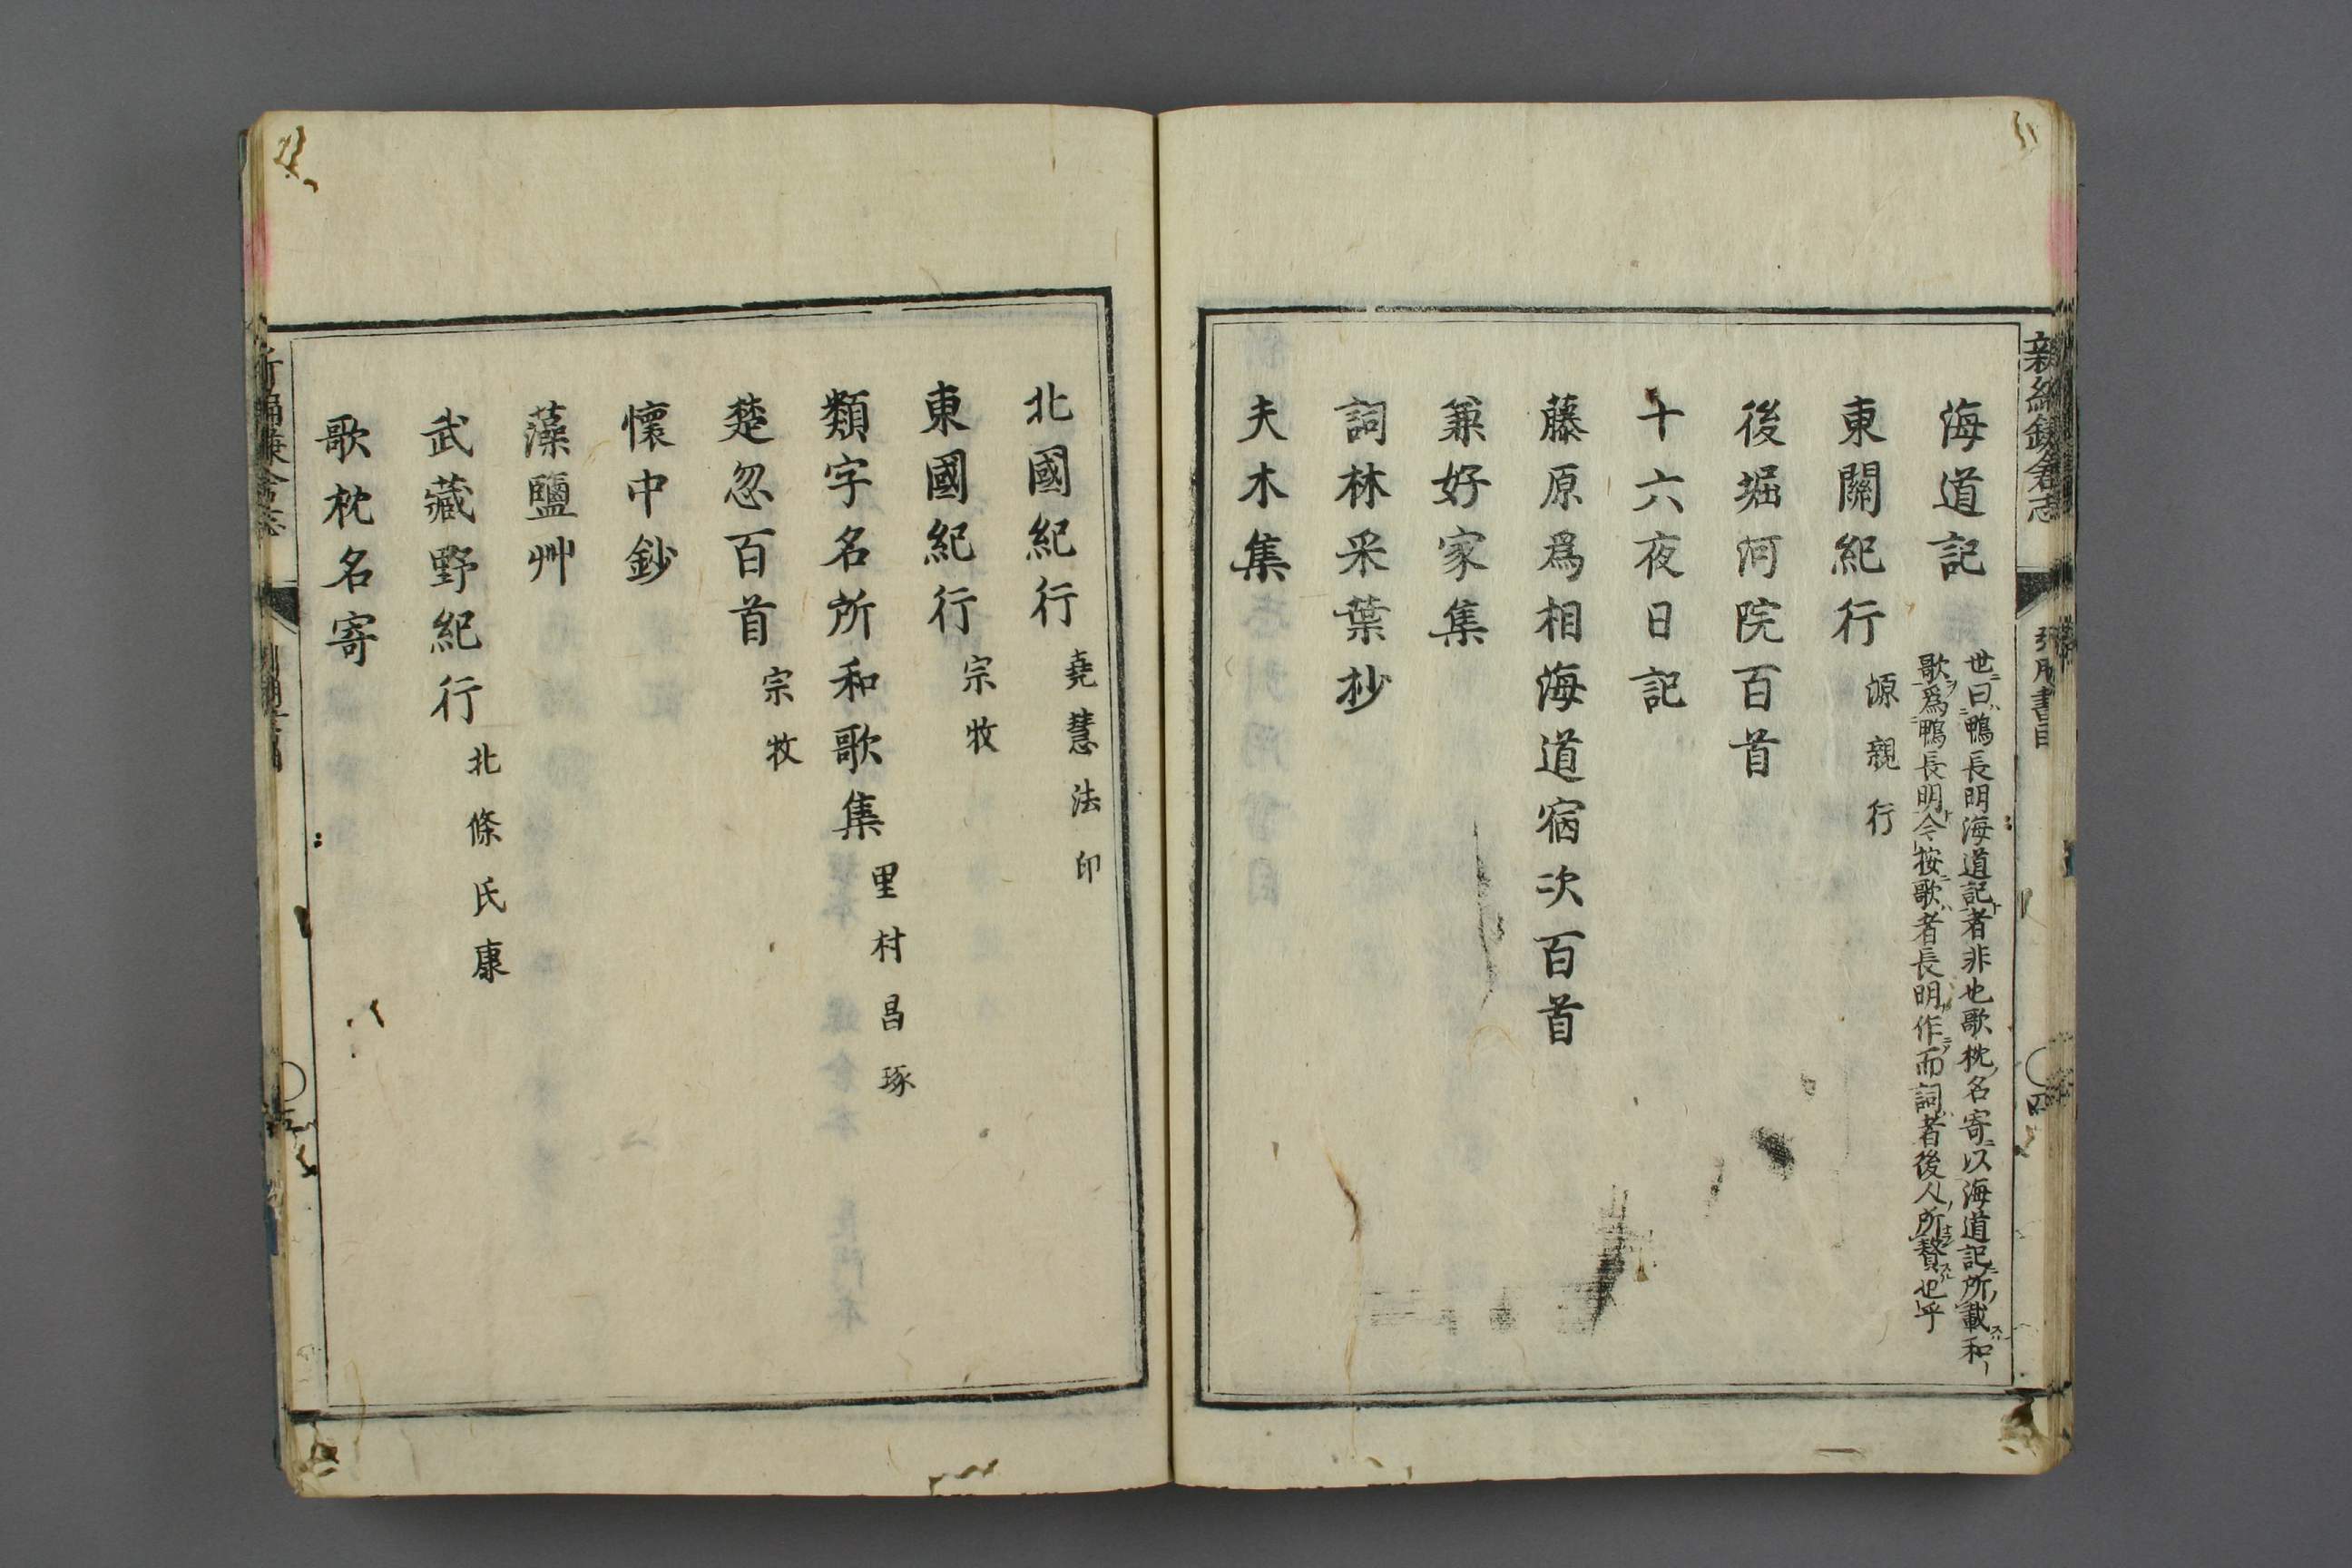 新編鎌倉志
引用書目
海道記
世曰鴨長明海道記者非也歌枕名寄以海道記所載和
歌爲鴨長明今按歌者長明作而詞者後人所贅也乎
東關紀行 源親行
後堀河院百首
十六夜日記
藤原爲相海道宿次百首
兼好家集
詞林采葉抄
夫木集
北國紀行 堯慧法印
東國紀行 宗牧
類字名所和歌集 里村昌琢
楚忽百首 宗牧
懷中鈔
藻鹽艸
武藏野紀行 北條氏康
歌枕名寄